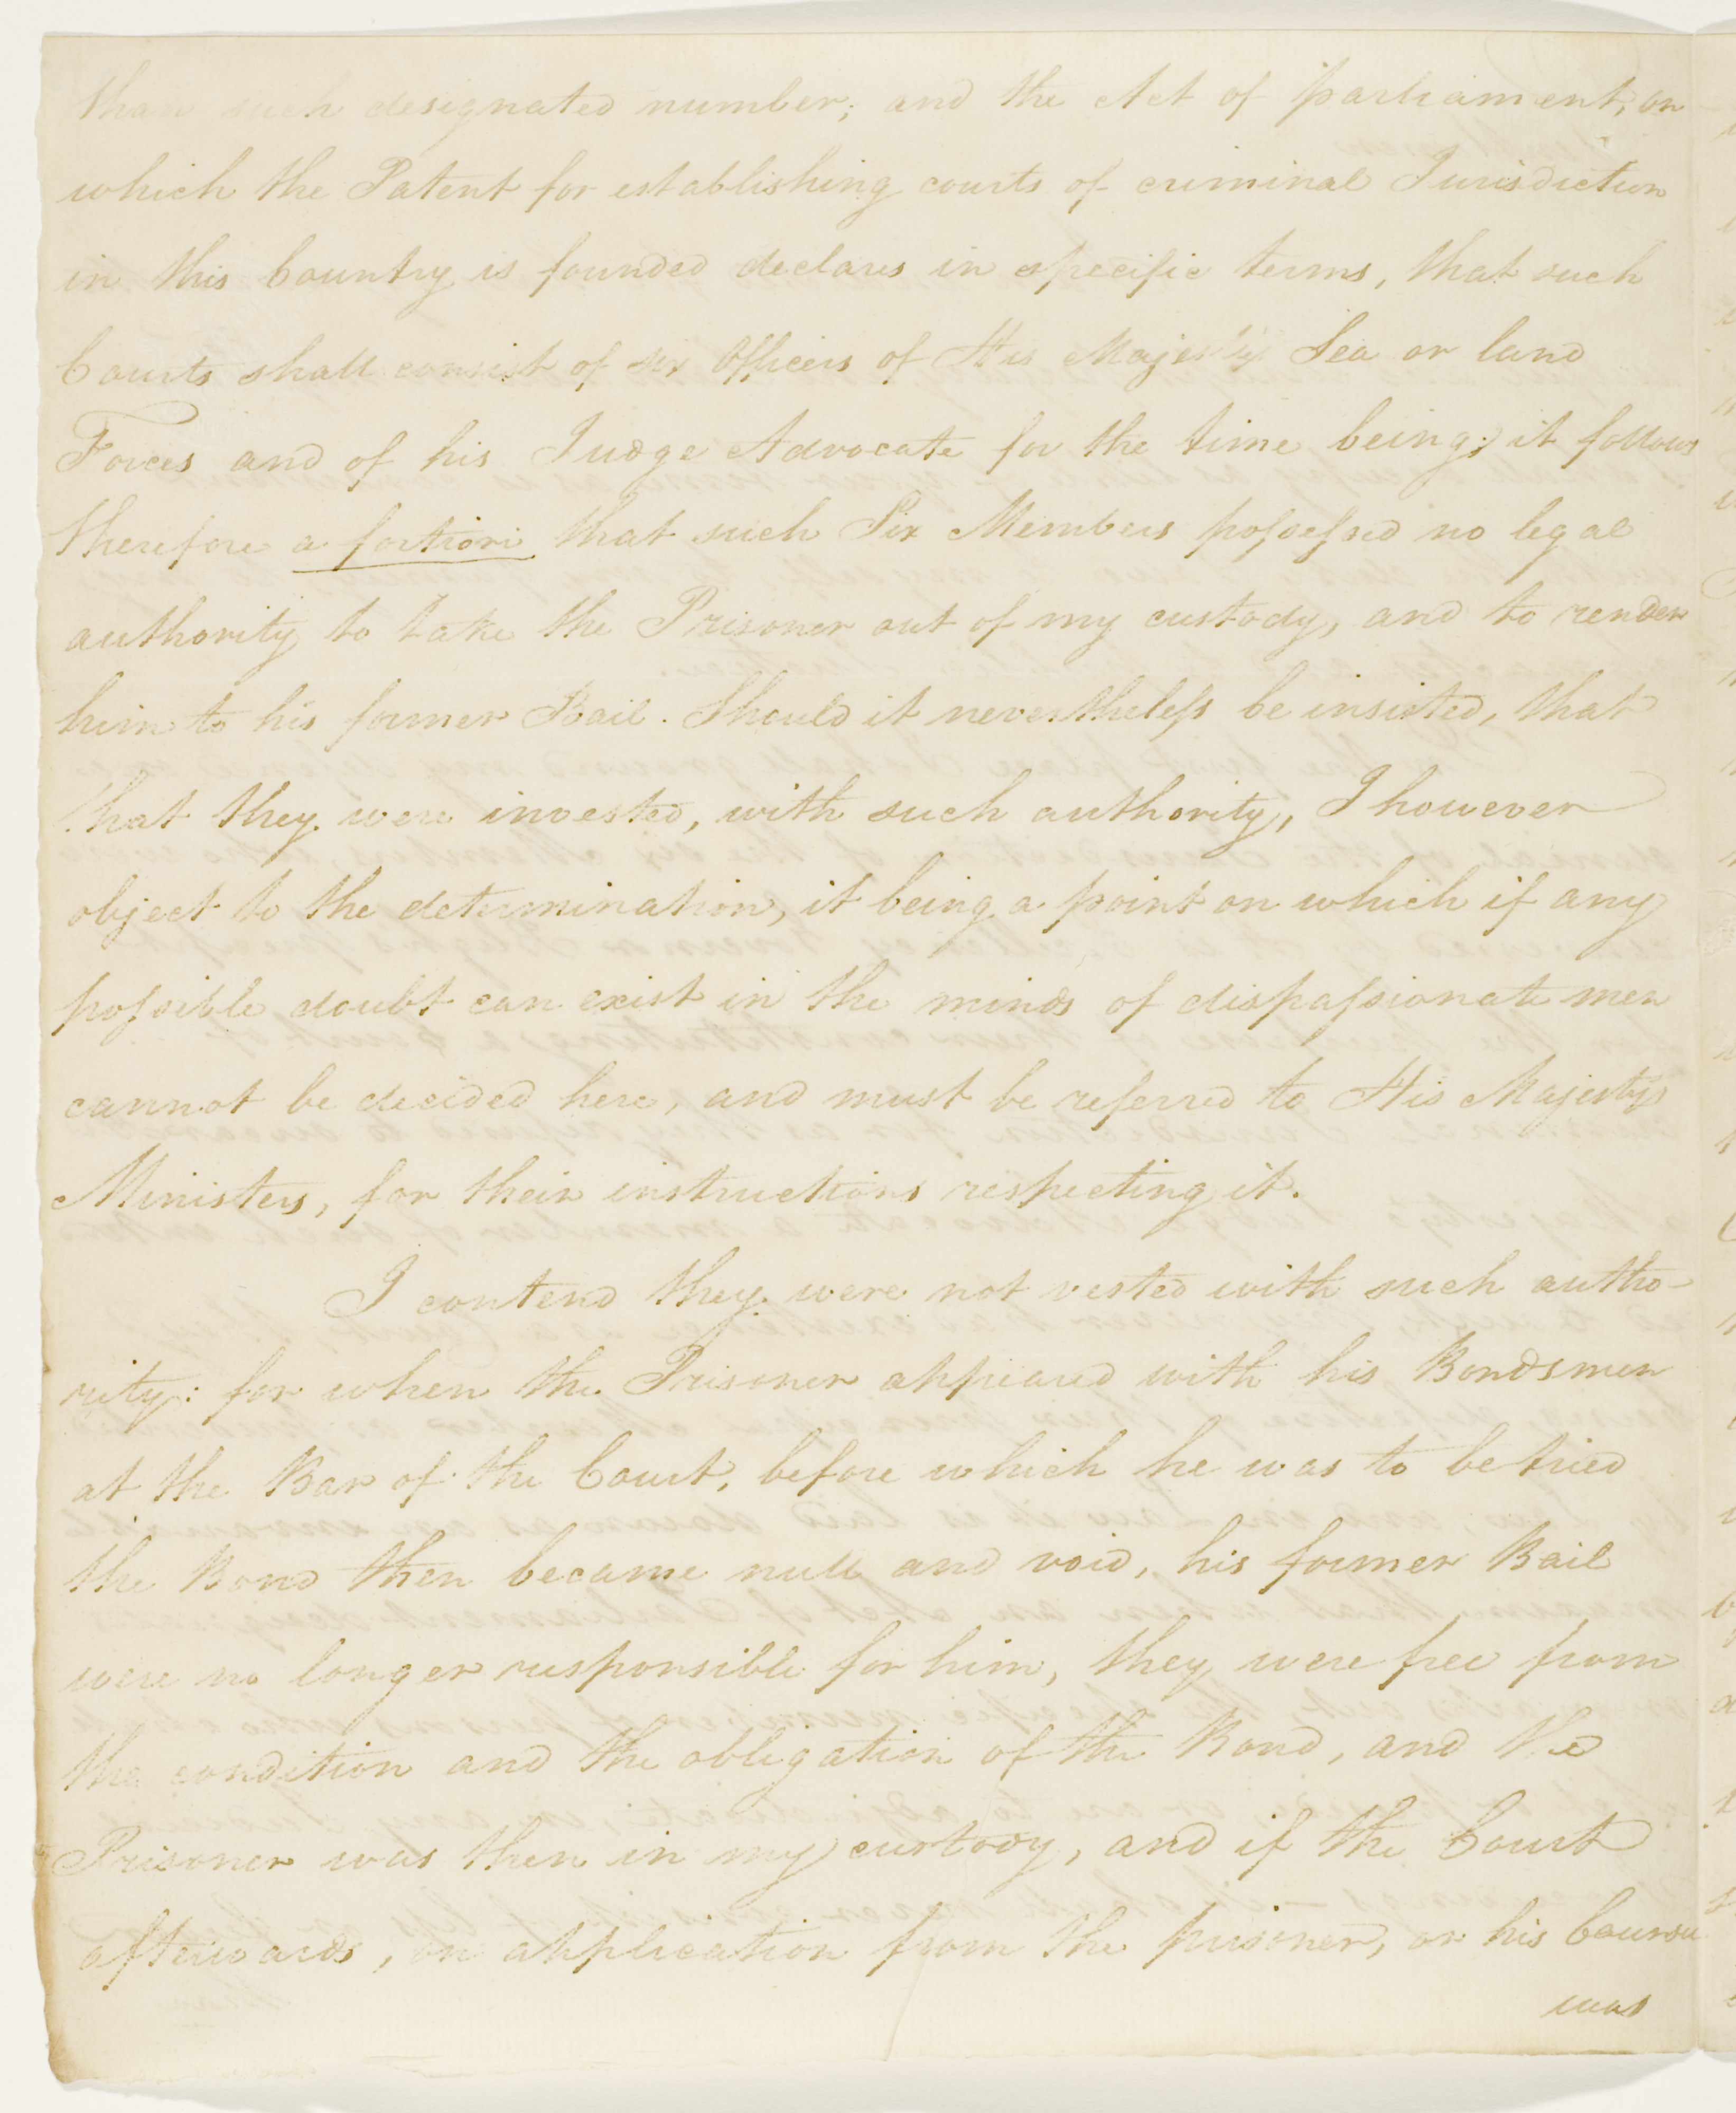 than such designated number; and the Act of parliament, on
which the Patent for establishing courts of criminal Jurisdiction
in this Country is founded declares in specific terms, that such
Courts shall consist of six Officers of His Majesty's Sea or land
Forces and of his Judge Advocate for the time being; it follows
therefore a fortiori that such Six Members possessed no legal
authority to take the Prisoner out of my custody, and to render
him to his former Bail. Should it nevertheless be insisted, that
that they were invested, with such authority, I however
object to the determination, it being a point on which if any
possible doubt can exist in the minds of dispassionate men
cannot be decided here, and must be referred to His Majestys
Ministers, for their instructions respecting it.
I contend they were not vested with such autho-
rity: for when the Prisoner appeared with his Bondsmen
at the Bar of the Court, before which he was to be tried
the Bond then became null and void, his former Bail
were no longer responsible for him, they were free from
the condition and the obligation of the Bond, and the
Prisoner was then in my custody, and if the Court
afterwards, on application from the prisoner, or his Counsel
was